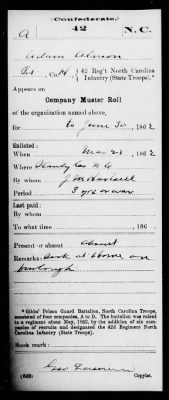 (Confederate.)
A 42 N.C.
Adam Almon
Pvt, Co. { 42 Reg't North Carolina
Infantry (State Troops).*
Appears on
Company Muster Roll
of the organization named above,
for to June 30, 1862
Enlisted:
When Mar 28, 1862
Where Stanly Co N C
By whom J M
Period 3 yrs or war
Last paid:
By whom
To what time , 186
Present or absent Absent
Remarks: Sick at Home on
furlough
* Gibbs' Prison Guard Battalion, North Carolina Troops,
consisted of four companies, A to D. The battalion was raised
to a regiment about May, 1862, by the addition of six com-
panies of recruits and designated the 42d Regiment North
Carolina Infantry (State Troops).
Book mark:
(642) Geo Copyist.